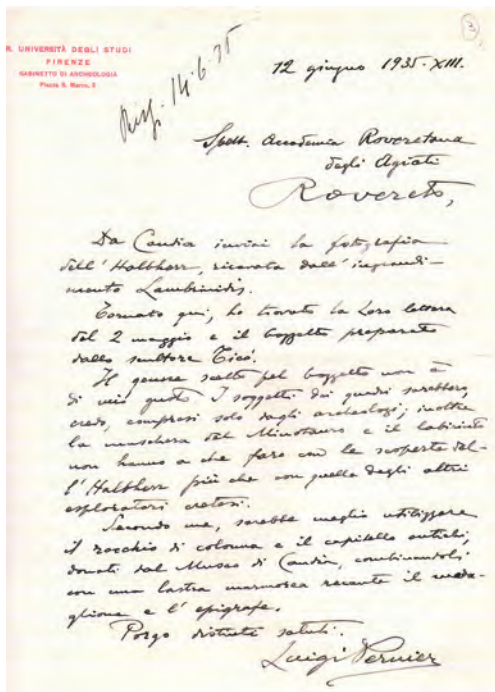 3
R. UNIVERSITÀ DEGLI STUDI
FIRENZE
GABINETTO DI ARCHEOLOGIA
Piazza S. Marco, 2
Risp. 14.6.35
12 giugno 1935-XIII.
Spett. Accademia Roveretana
degli Agiati
Rovereto,
Da Candia inviai la fotografia
dell'Halbherr, ricavata dall'ingrandi-
mento Lambrinidis.
Tornato qui, ho trovato la Loro lettera
del 2 maggio e il bozzetto preparato
dallo scultore Ticó.
Il genere scelto pel bozzetto non è
di mio gusto. I soggetti dei quadri sarebbero,
credo, compresi solo dagli archeologi; inoltre
la maschera del Minotauro e il labirinto
non hanno a che fare con le scoperte del-
l'Halbherr più che con quelle degli altri
esploratori cretesi.
Secondo me, sarebbe meglio utilizzare
il rocchio di colonna e il capitello antichi,
donati dal Museo di Candia, combinandoli
con una lastra marmorea recante il meda-
glione e l'epigrafe.
Porgo distinti saluti.
Luigi Pernier